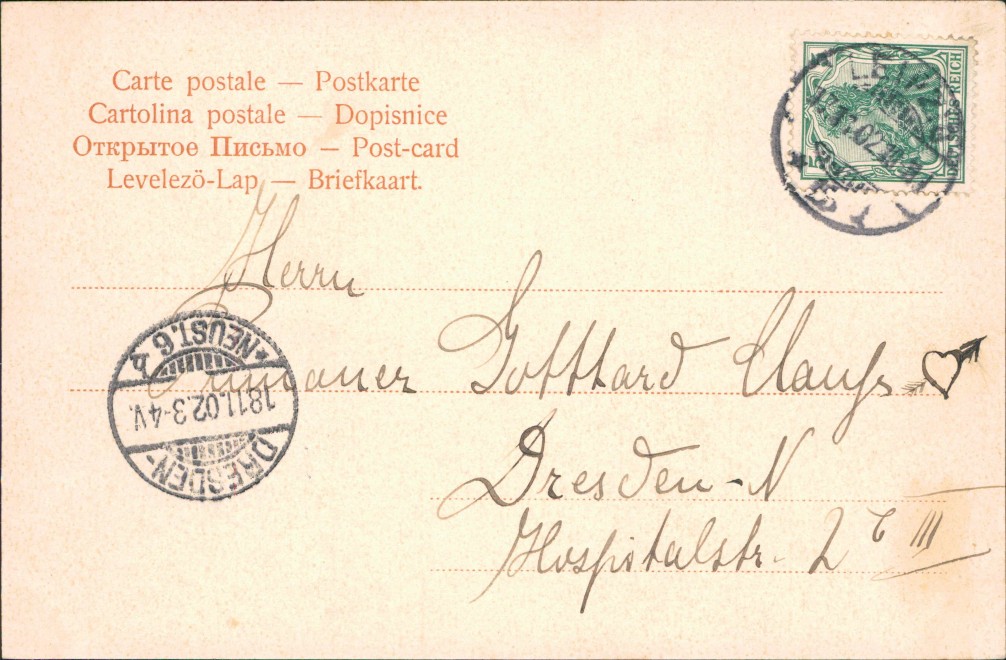 Carte postale — Postkarte
Cartolina postale — Dopisnice
Открытое Письмо — Post-card
Levelezö-Lap — Briefkaart.
DEUTSCHES REICH
Herrn
Primaner Gotthard Clauß
Dresden-N
Hospitalstr. 2 III
DRESDEN-
18.11.02.3-4V.
*NEUST.6 b